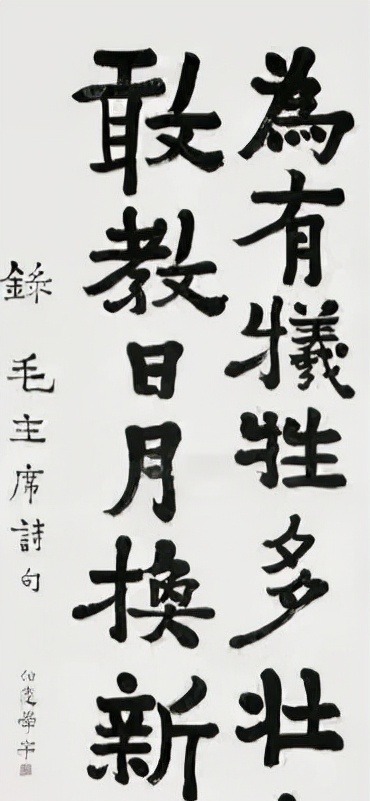 為有犧牲多壯
敢教日月換新
錄毛主席詩句